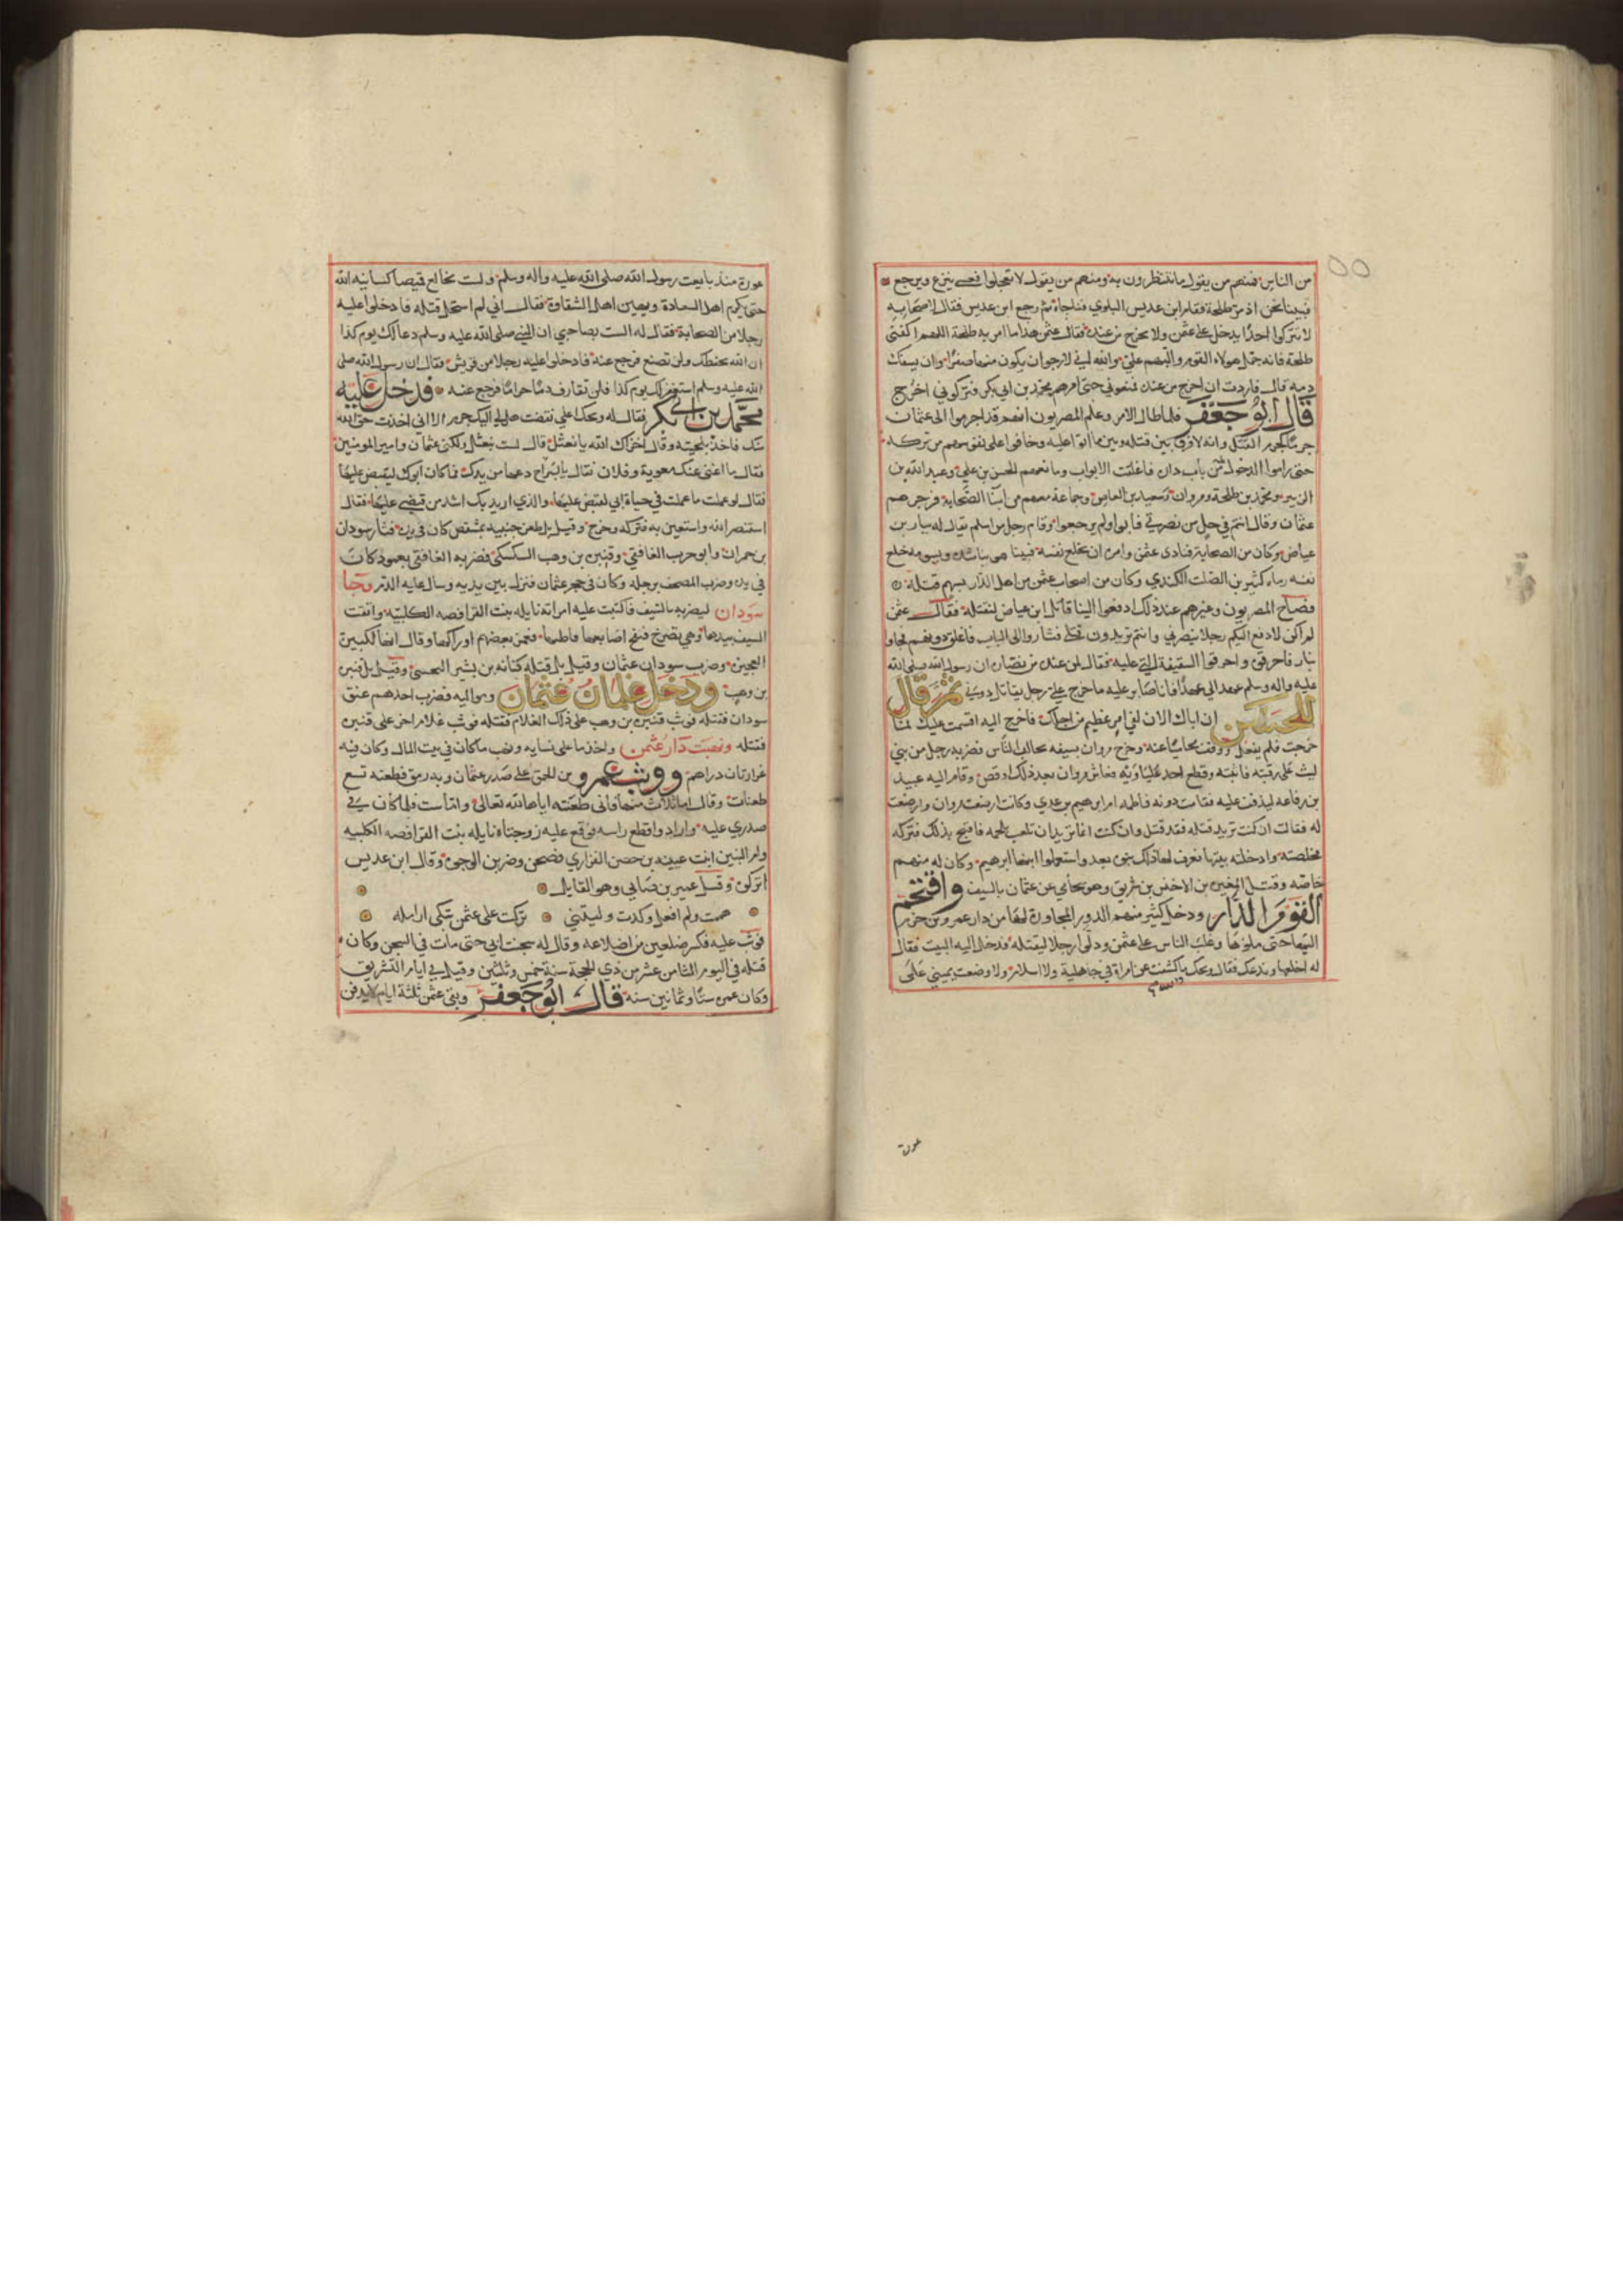 من الناس فمنهم من يقول ما تنتظرون به ومنهم من يقول لا تعجلوا فعسى ينزع ويرجع
فبينا نحن اذ مر طلحة فقام ابن عديس البلوي فناجاه ثم رجع ابن عديس فقال لاصحابه
لا تتركوا احدًا يدخل على عثمن ولا يخرج من عنده فقال عثمن هذا ما امر به طلحة اللهم اكفني
طلحة فانه حمل هولاء القوم والبهم علي والله اني لارجو ان يكون منها صفرًا وان يسفك
دمه قال فاردت ان اخرج من عنده فمنعوني حتى امرهم محمد بن ابي بكر فتركوني اخرج
قال ابو جعفر فلما طال الامر وعلم المصريون انهم قد اجرموا الى عثمان
جرمًا كجرم القتل وانه لا فرق بين قتله وبين ما اتوا عليه وخافوا على نفوسهم من تركه
حتى راموا الدخول من باب داره فاغلقت الابواب ومانعهم الحسن بن علي وعبد الله بن
الزبير ومحمد بن طلحة ومروان وسعيد بن العاص وجماعة معهم من ابنا الصحابة فزجرهم
عثمان وقال انتم في حل من نصرتي فابوا ولم يرجعوا وقام رجل من اسلم يقال له نيار بن
عياض وكان من الصحابة فنادى عثمن وامره ان يخلع نفسه فبينا هو يناشده ويسومه خلع
نفسه رماه كثير بن الصلت الكندي وكان من اصحاب عثمن من اهل الدار بسهم قتله
فصاح المصريون وغيرهم عند ذلك ادفعوا الينا قاتل ابن عياض لنقتله فقال عثمن
لم اكن لادفع اليكم رجلا ينصرني وانتم تريدون قتلي فثاروا الى الباب فاغلق دونهم فجاوا
بنار فاحرقوه واحرقوا السقيفة التي عليه فقال لمن عنده من نصاره ان رسول الله صلى الله
عليه واله وسلم عهد الي عهدًا فانا صابر عليه ما خرج علي رجل يقاتل دوني ثم قال
للحسن ان اباك الان لفي امر عظيم من اجلك فاخرج اليه اقسمت عليك لما
خرجت فلم يفعل ووقف محاميًا عنه وخرج مروان بسيفه يجالد الناس فضربه رجل من بني
ليث على رقبته فاثبته وقطع احد علباويه فعاش مروان بعد ذلك اوقص وقام اليه عبيد
بن رفاعه ليذفف عليه فقامت دونه فاطمه ام ابراهيم بن عدي وكانت ارضعت مروان وارضعت
له فقالت ان كنت تريد قتله فقد قتل وان كنت انما تريد ان تلعب بلحمه فاقبح بذلك فتركه
مخلصته وادخلته بيتها فعرف لها ذلك بنوه بعد واستعملوا ابنها ابرهيم وكان له منهم
خاصه وقتل المغيره بن الاخنس بن شريق وهو يحامي عن عثمان بالسيف واقتحم
القوم الدار ودخل كثير منهم الدور المجاورة لها من دار عمرو بن حزم
اليها حتى ملؤها وغلب الناس على عثمن ودلوا رجلا ليقتله فدخل اليه البيت فقال
له اخلعها وندعك فقال ويحك ما كشفت عن امراة في جاهلية ولا اسلام ولا وضعت يميني على
عورة
عورة منذ بايعت رسول الله صلى الله عليه واله وسلم ولست بخالع قميصا كسانيه الله
حتى يكرم اهل السعادة ويهين اهل الشقاوة فقال اني لم استحل قتله فادخلوا عليه
رجلا من الصحابة فقال له الست بصاحبي ان النبي صلى الله عليه وسلم دعا لك يوم كذا
ان الله يحفظك ولن تضيع فرجع عنه فادخلوا عليه رجلا من قريش فقال ان رسول الله صلى
الله عليه وسلم استغفر لك يوم كذا فلن تقارف دمًا حرامًا فرجع عنه فدخل عليه
محمد بن ابي بكر فقال له ويحك اعلي تغضب هل لي اليك جرم الا اني اخذت حق الله
منك فاخذ بلحيته وقال اخزاك الله يا نعثل قال لست بنعثل ولكني عثمان وامير المومنين
فقال ما اغنى عنك معوية وفلان فقال يا ابن اخ دعها من يدك فما كان ابوك ليقبض عليها
فقال لو عملت ما عملت في حياة ابي لقبض عليها والذي اريد بك اشد من قبضي عليها فقال
استنصر الله واستعين به فتركه وخرج وقيل بل طعن جنبيه بمشقص كان في يده فثار سودان
بن حمران وابو حرب الغافقي وقتيره بن وهب السكسكي فضربه الغافقي بعمود كان
في يده وضرب المصحف برجله وكان في حجر عثمان فنزل بين يديه وسال عليه الدم وجا
سودان ليضربه بالسيف فاكبت عليه امراته نايله بنت الفرافصه الكلبيه واتقت
السيف بيدها وهي تصرخ فنفح اصابعها فاطنها فغمز بعضهم اوراكها وقال انها لكبيرة
العجيزه وضرب سودان عثمان وقيل بل قتله كنانه بن بشر التجيبي وقيل بل قتيره
بن وهب ودخل غلمان عثمان ومواليه فضرب احدهم عنق
سودان فقتله فوثب قتيره بن وهب على ذلك الغلام فقتله فوثب غلام اخر على قتيره
فقتله ونهبت دار عثمن واخذ ما على نسايه ونهب ما كان في بيت المال وكان فيه
غرارتان دراهم ووثب عمرو بن الحمق على صدر عثمان وبه رمق فطعنه تسع
طعنات وقال اما ثلاث منها فاني طعنته اياها لله تعالى واما ست فلما كان في
صدري عليه واراد واقطع راسه فوقع عليه زوجتاه نايله بنت الفرافصه الكلبيه
وام البنين ابنت عيينه بن حصن الفزاري فصحن وضربن الوجوه وقال ابن عديس
اتركوه وقيل عمير بن ضابي وهو القايل
هممت ولم افعل وكدت وليتني تركت على عثمن تبكي ارامله
فوثب عليه فكسر ضلعين من اضلاعه وقال له سجنت ابي حتى مات في السجن وكان
قتله في اليوم الثامن عشر من ذي الحجة سنة خمس وثلثين وقيل في ايام التشريق
وكان عمره ستًا وثمانين سنه قال ابو جعفر وبقي عثمن ثلثة ايام لا يدفن